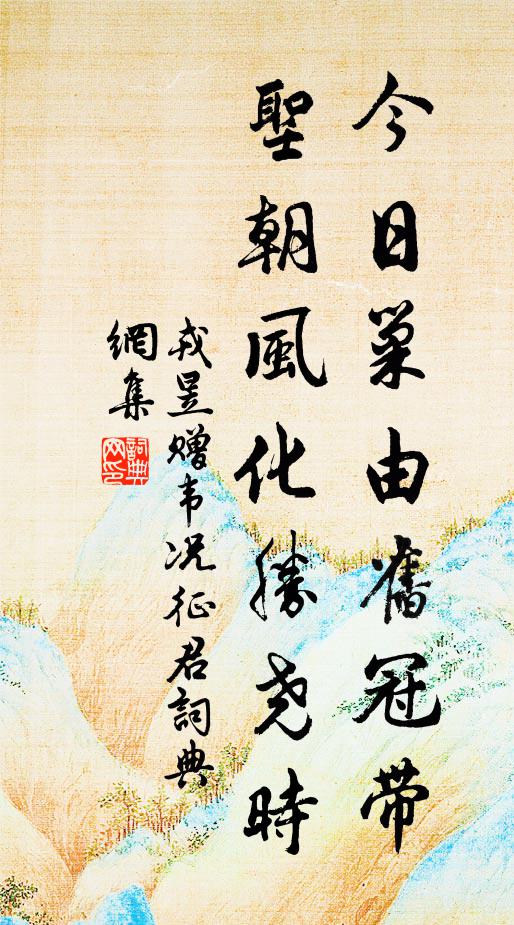 今日巢由舊冠帶
聖朝風化勝尧時
戎昱赠韦况征君詞典
網集
詞典
网